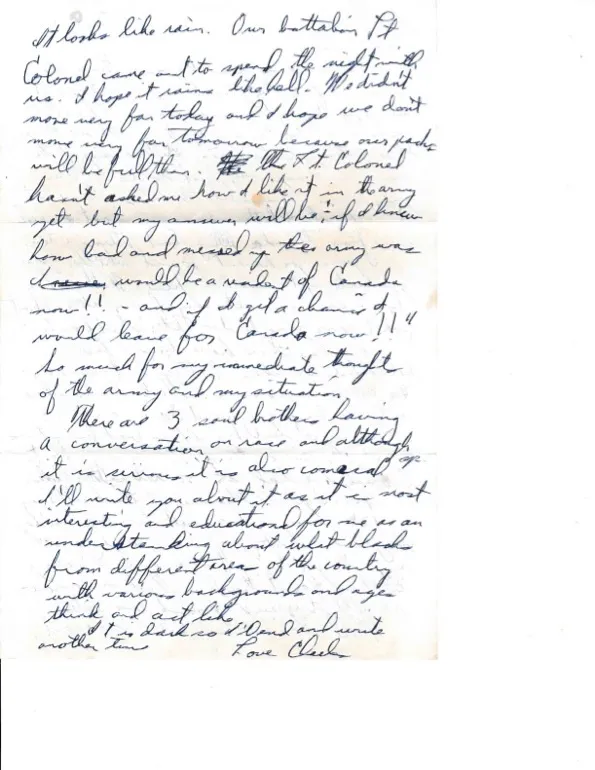 It looks like rain. Our battalion Lt
Colonel came out to spend the night with
us. I hope it rains like hell. We didn't
move very far today and I hope we don't
move very far tomorrow because our packs
will be full then. The Lt. Colonel
hasn't asked me how I like it in the army
yet but my answer will be: "if I knew
how bad and messed up the army was
I would be a resident of Canada
now!! - and if I get a chance I
would leave for Canada now!!"
So much for my immediate thoughts
of the army and my situation
There are 3 soul brothers having
a conversation on race and although
it is serious it is also comical
I'll write you about it as it is most
interesting and educational for me as an
understanding about what blacks
from different areas of the country
with various backgrounds and ages
think and act like
It is dark so I'll end and write
another time Love